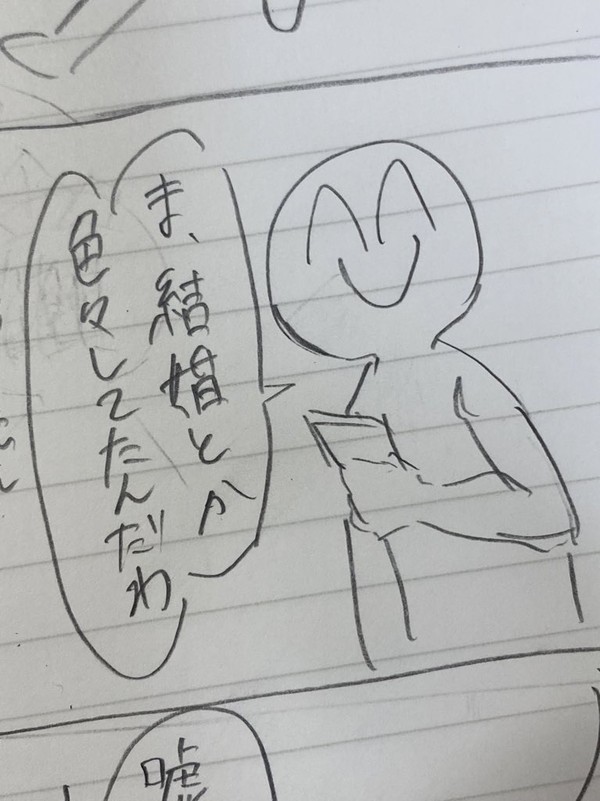 ま、結婚とか
色々してたんだわ
嘘